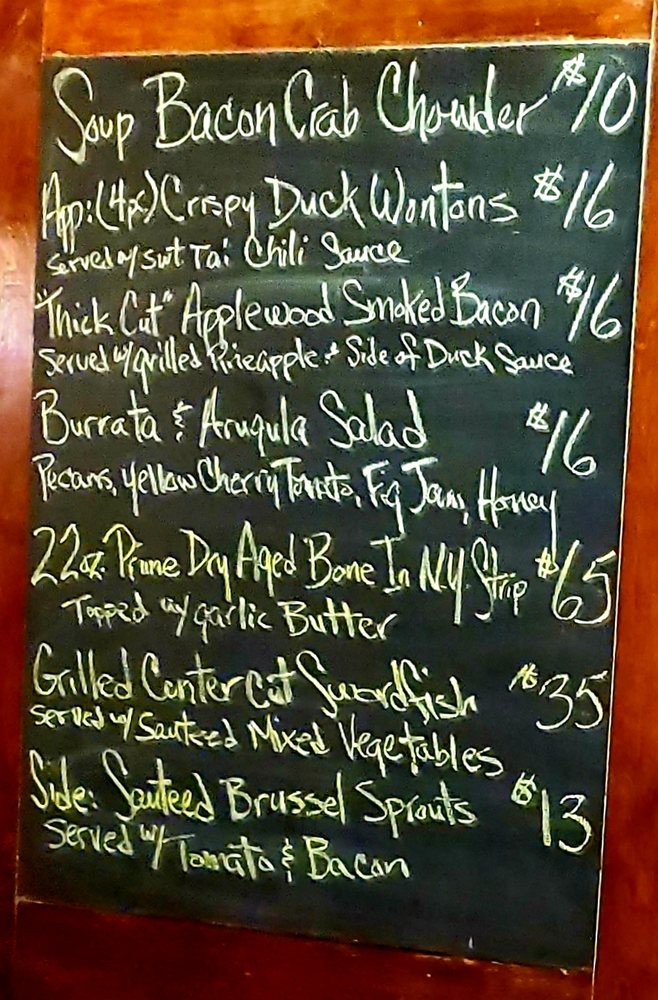 Soup Bacon Crab Chowder $10
App: (4pc) Crispy Duck Wontons $16
Served w/ swt Tai Chili Sauce
"Thick Cut" Applewood Smoked Bacon $16
Served w/ grilled Pineapple & Side of Duck Sauce
Burrata & Arugula Salad $16
Pecans, yellow Cherry Tomato, Fig Jam, Honey
22oz. Prime Dry Aged Bone In N.Y. Strip $65
Topped w/ garlic Butter
Grilled Center Cut Swordfish $35
Served w/ Sauteed Mixed Vegetables
Side: Sauteed Brussel Sprouts $13
Served w/ Tomato & Bacon